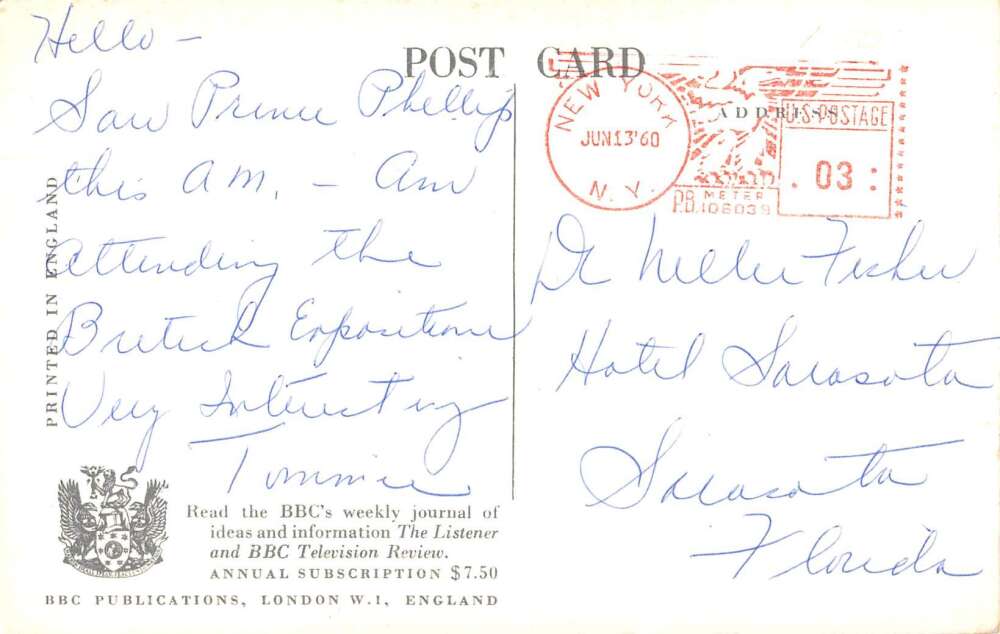 Hello –
Saw Prince Phellip
this a M. – Am
attending the
British Exposition
Very Interesting
Tommie
POST CARD
ADDRESS
NEW YORK
JUN 13 '60
N. Y.
U.S. POSTAGE
. 03 :
P.B. METER
106039
Dr Fisher
Hotel Sarasota
Sarasota
Florida
PRINTED IN ENGLAND
Read the BBC's weekly journal of
ideas and information The Listener
and BBC Television Review.
ANNUAL SUBSCRIPTION $7.50
BBC PUBLICATIONS, LONDON W.1, ENGLAND